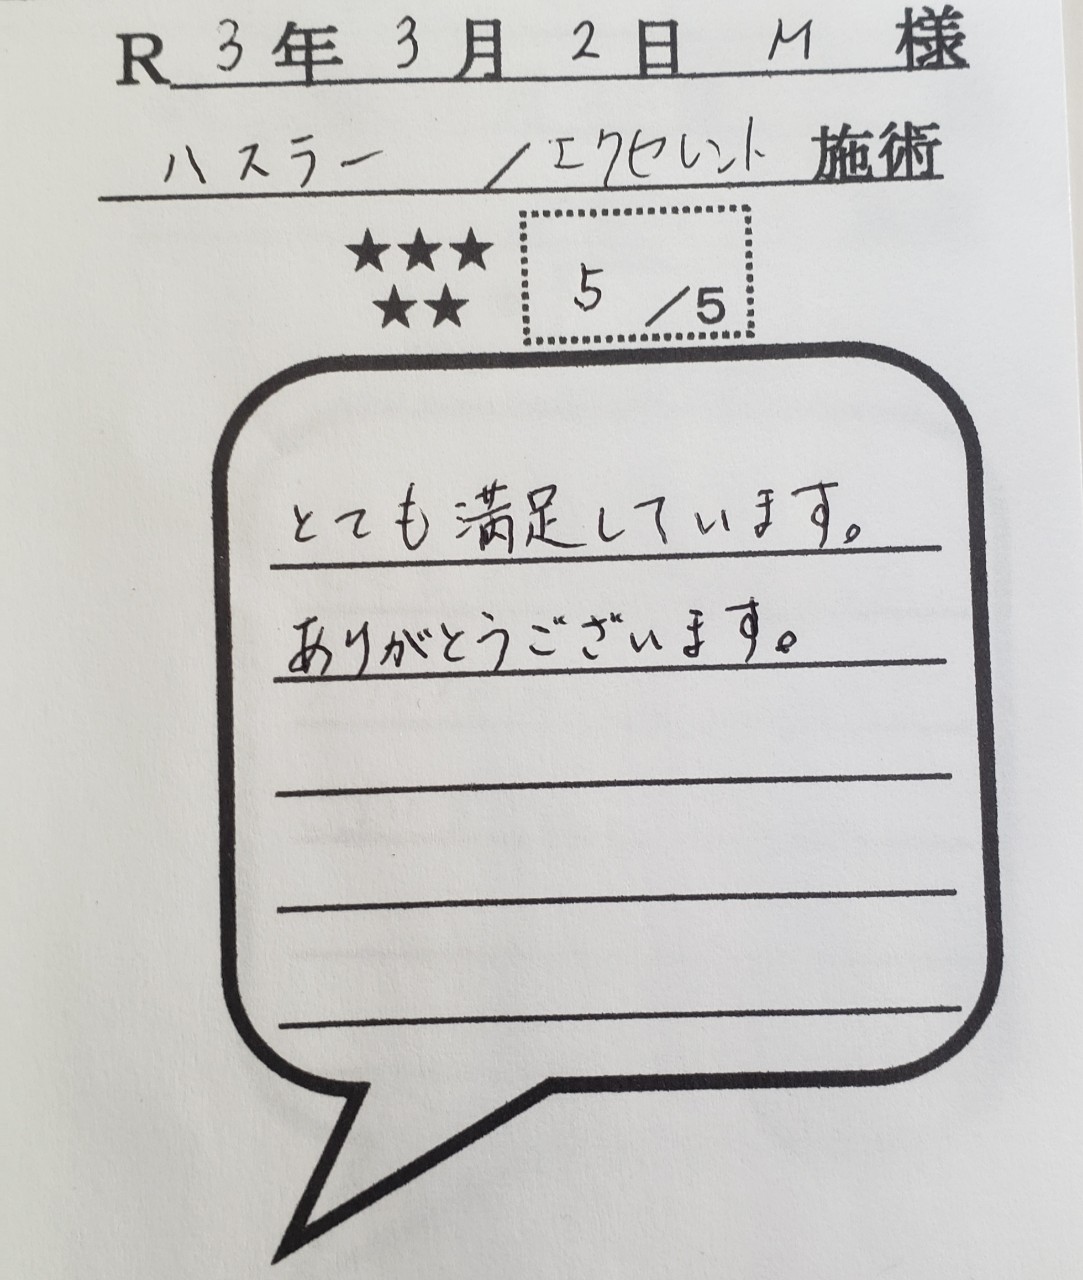 R 3年 3月 2日 M 様
ハスラー /エクセレント 施術
★★★
★★
5 /5
とても満足しています。
ありがとうございます。